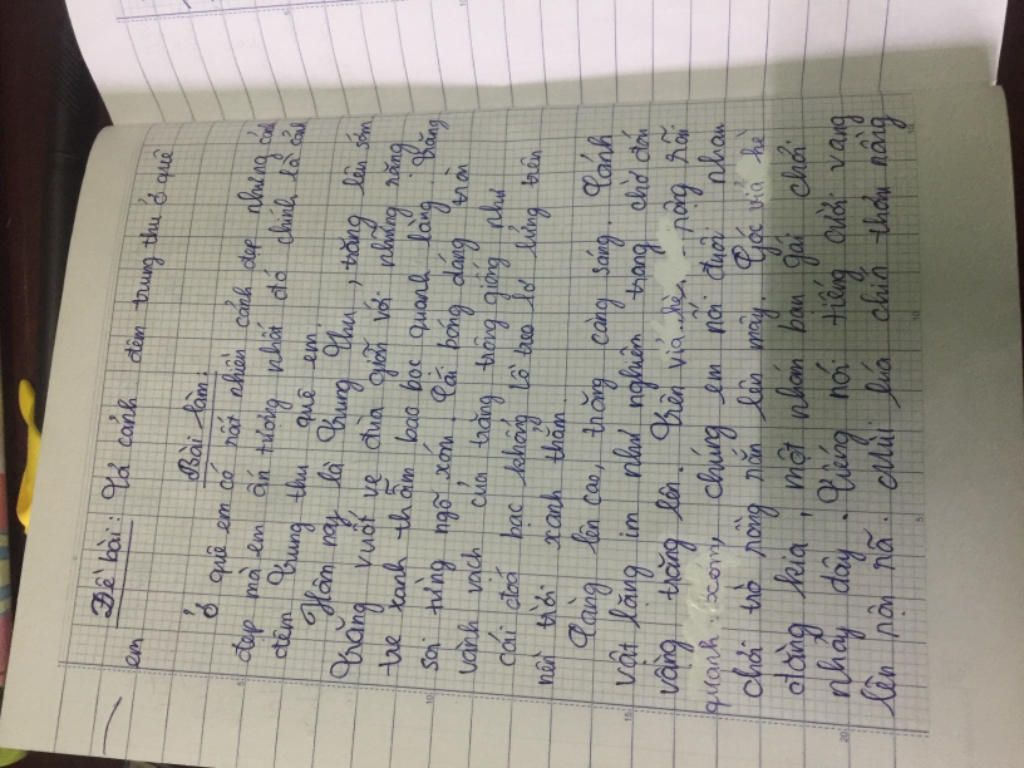 Đề bài: Tả cảnh đêm trung thu ở quê
em
Bài làm:
Ở quê em có rất nhiều cảnh đẹp những cảnh
đẹp mà em ấn tượng nhất đó chính là cảnh
đêm trung thu quê em.
Hôm nay là Trung Thu, trăng lên sớm
Trăng vuốt ve đùa giỡn với những rặng
tre xanh thẫm bao bọc quanh làng. Trăng
soi từng ngõ xóm. Cái bóng dáng tròn
vành vạch của trăng trông giống như
cái đĩa bạc khổng lồ treo lơ lửng trên
nền trời xanh thẳm.
Càng lên cao, trăng càng sáng. Cảnh
vật lặng im như nghiêm trang chờ đón
vầng trăng lên. Trên vỉa hè, rộng rãi
quanh xóm, chúng em nối đuôi nhau
chơi trò rồng rắn lên mây. Góc vỉa hè
đằng kia, một nhóm bạn gái chơi
nhảy dây. Tiếng nói tiếng cười vang
lên rộn rã. Mùi lúa chín thơm nồng